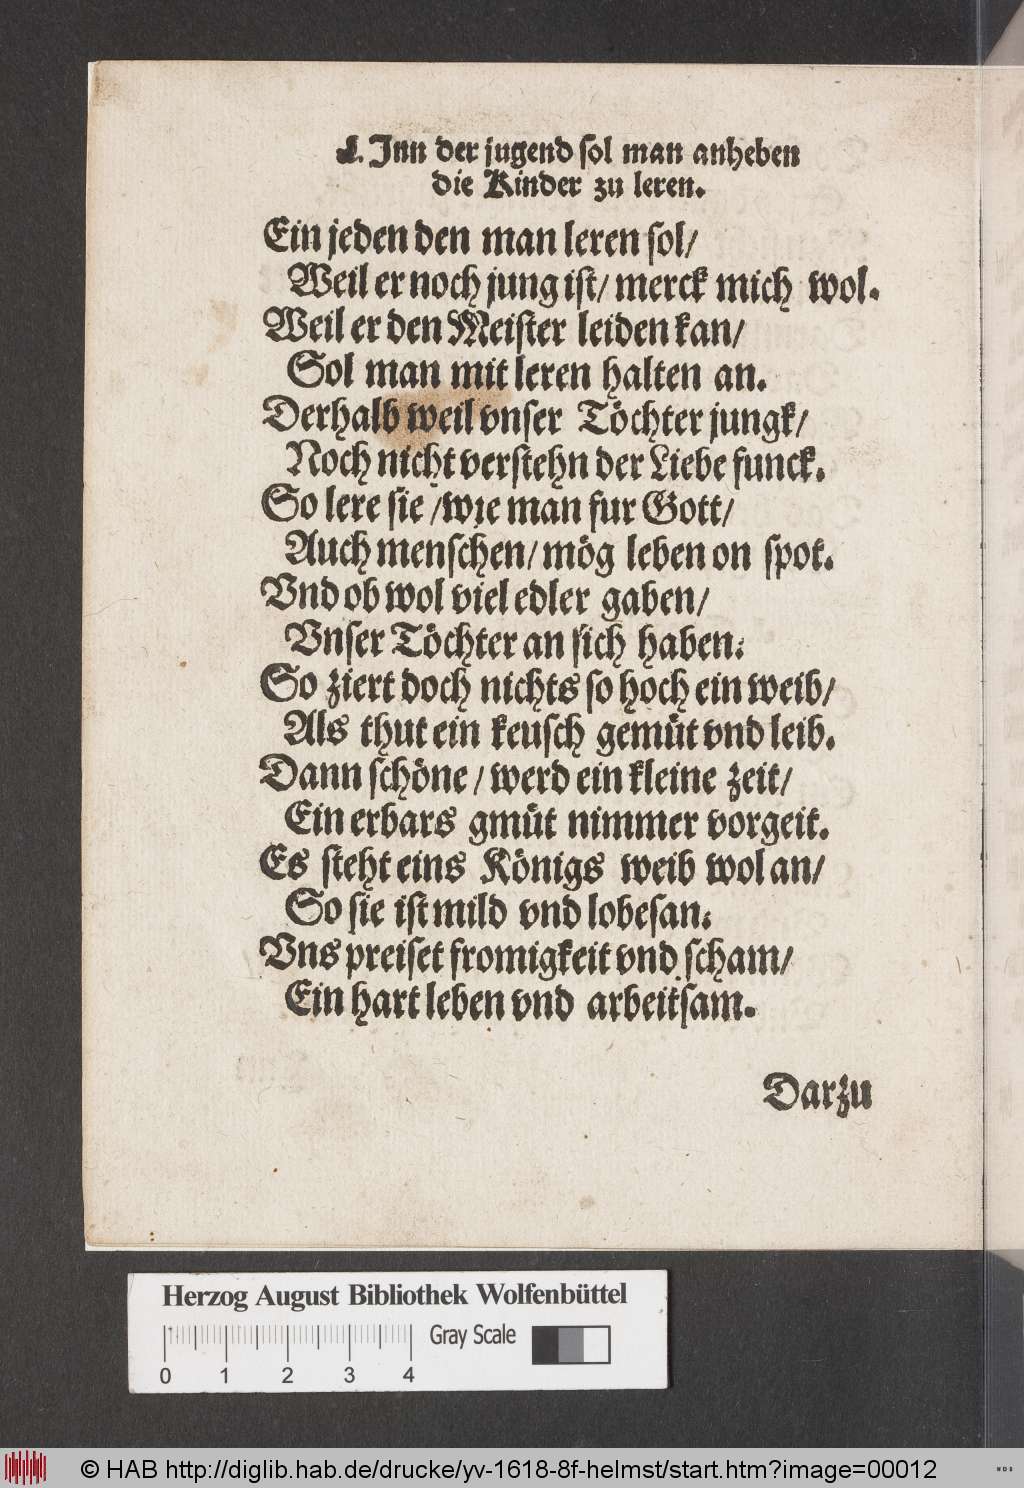 L. Inn der jugend sol man anheben
die Kinder zu leren.
Ein jeden den man leren sol/
Weil er noch jung ist/ merck mich wol.
Weil er den Meister leiden kan/
Sol man mit leren halten an.
Derhalb weil vnser Töchter jungk/
Noch nicht verstehn der Liebe funck.
So lere sie /wie man fur Gott/
Auch menschen/ mög leben on spot.
Vnd ob wol viel edler gaben/
Vnser Töchter an sich haben:
So ziert doch nichts so hoch ein weib/
Als thut ein keusch gemüt vnd leib.
Dann schöne / werd ein kleine zeit/
Ein erbars gmüt nimmer vorgeit.
Es steht eins Königs weib wol an/
So sie ist mild vnd lobesan:
Vns preiset fromigkeit vnd scham/
Ein hart leben vnd arbeitsam.
Darzu
Herzog August Bibliothek Wolfenbüttel
Gray Scale
0 1 2 3 4
© HAB http://diglib.hab.de/drucke/yv-1618-8f-helmst/start.htm?image=00012